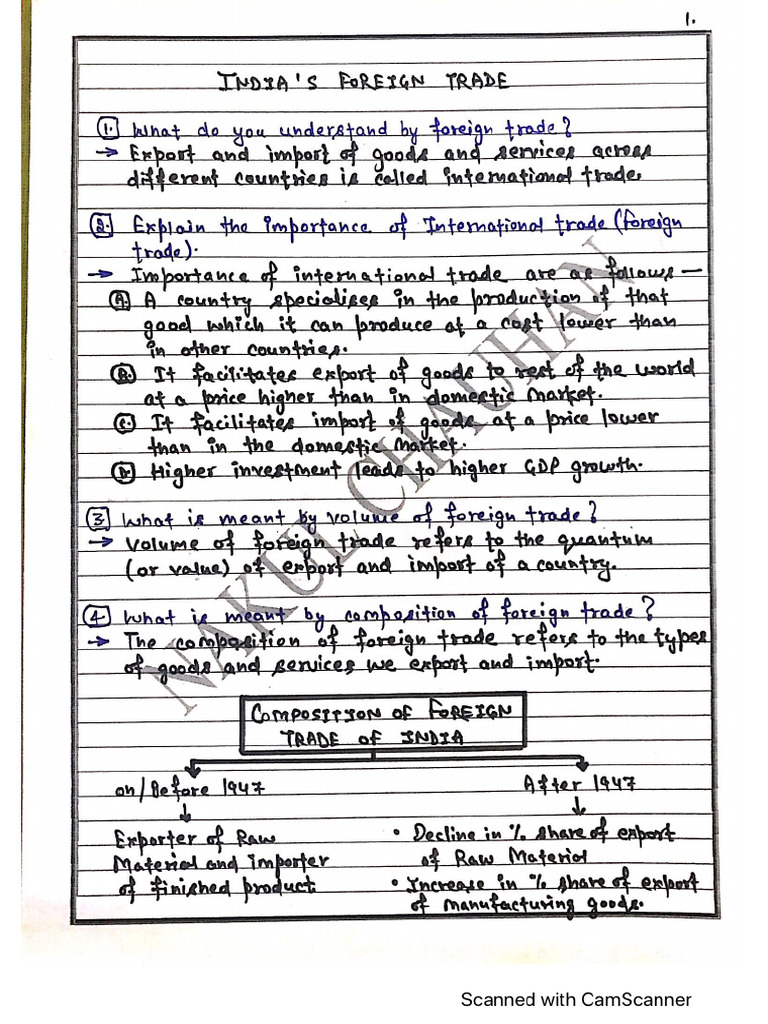 1.
INDIA'S FOREIGN TRADE
1. What do you understand by foreign trade?
→ Export and import of goods and services across
different countries is called international trade.
2. Explain the importance of International trade (foreign
trade).
→ Importance of international trade are as follows —
A. A country specialises in the production of that
good which it can produce at a cost lower than
in other countries.
B. It facilitates export of goods to rest of the world
at a price higher than in domestic market.
C. It facilitates import of goods at a price lower
than in the domestic market.
D. Higher investment leads to higher GDP growth.
3. What is meant by volume of foreign trade?
→ Volume of foreign trade refers to the quantum
(or value) of export and import of a country.
4. What is meant by composition of foreign trade?
→ The composition of foreign trade refers to the types
of goods and services we export and import.
COMPOSITION OF FOREIGN
TRADE OF INDIA
on/Before 1947
↓
Exporter of Raw
Material and importer
of finished product
After 1947
↓
• Decline in % share of export
of Raw Material
• Increase in % share of export
of manufacturing goods.
NAKUL CHAUHAN
Scanned with CamScanner